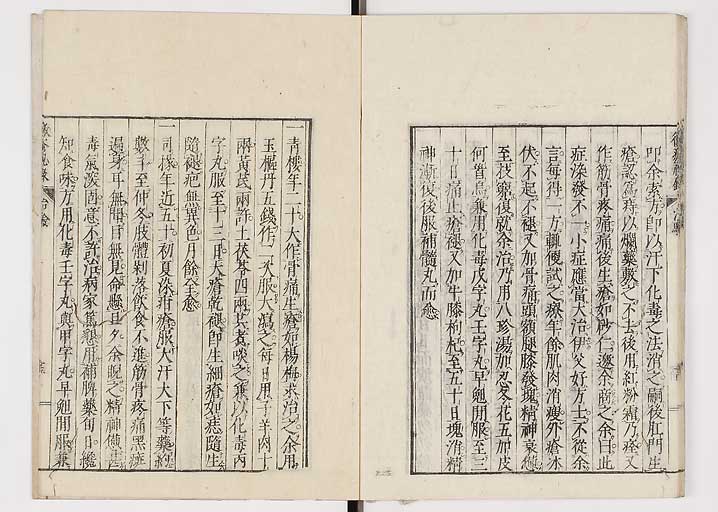 卽余素方卽以汗下化毒之法消之嗣後肛門生
瘡認爲痔以爛藥敷之不去後用紅粉霜乃痊又
作筋骨疼痛痛後生瘡如砂仁邀余商之余曰此
症深發不一小症應當大治伊父好方士不從余
言每得一方輒便試之療年餘肌肉消瘦外瘡氷
伏不起不褪又加骨痛頭顙腿膝發塊精神衰憊
至技窮復就余治乃用八珍湯加忍冬花五加皮
何首烏兼用化毒戊字丸壬字丸早剋間服至三
十日痛止瘡褪又加牛膝枸杞至五十日塊消精
神漸復後服補髓丸而愈
一靑樓年二十大作骨痛生瘡如楊梅求治之余用
玉樞丹五錢作二次服大瀉之每日用子羊肉十
兩黃芪兩許土茯苓四兩共煮啖之兼以化毒丙
字丸服至十三日大瘡乾褪卽生細瘡如痣隨生
隨褪疤無異色月餘全愈
一司椽年近五十初夏染疳瘡服大汗大下等藥經
數手至仲冬肢體剥落飲食不進筋骨疼痛黑瘢
遍身耳無聞目無見命懸旦夕余睨之精神俱
毒氣滋固意不許治病家篤懇用補脾藥旬日纔
知食味方用化毒壬字丸與甲字丸早剋間服兼